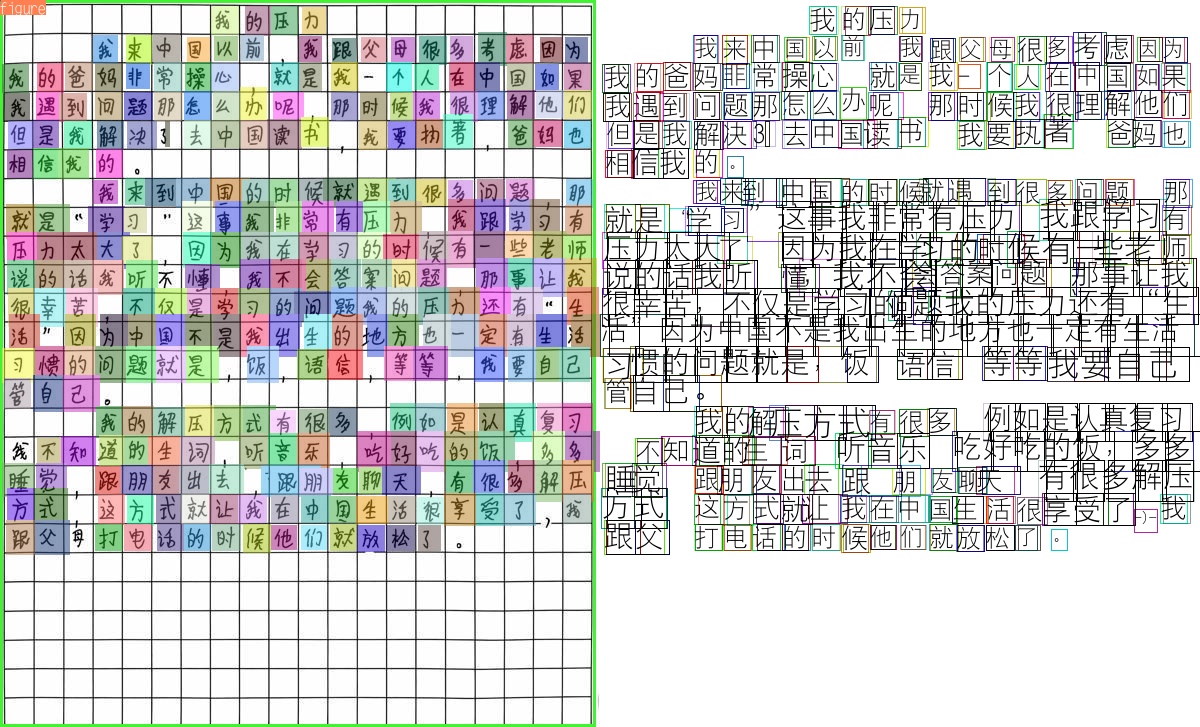 figure
我的压力
我来中国以前,我跟父母很多考虑因为
我的爸妈非常操心,就是我一个人在中国如果
我遇到问题那怎么办呢,那时候我很理解他们
但是我解决了去中国读书,我要执著,爸妈也
相信我的。
我来到中国的时候就遇到很多问题,那
就是“学习”这事我非常有压力,我跟学习有
压力太大了,因为我在学习的时候有一些老师
说的话我听不懂,我不会答案问题,那事让我
很幸苦,不仅是学习的问题我的压力还有“生
活”因为中国不是我出生的地方也一定有生活
习惯的问题就是,饭,语信,等等,我要自己
管自己。
我的解压方式有很多,例如是认真复习
我不知道的生词,听音乐,吃好吃的饭,多多
睡觉,跟朋友出去,跟朋友聊天,有很多解压
方式,这方式就让我在中国生活很享受了,我
跟父母打电话的时候他们就放松了。
我的压力
我来中国以前 我跟父母很多考虑因为
我的爸妈非常操心 就是我一个人在中国如果
我遇到问题那怎么办呢 那时候我很理解他们
但是我解决3 去中国读书 我要执著 爸妈也
相信我的。
我来到中国的时候就遇到很多问题 那
就是“学习”这事我非常有压力 我跟学习有
压力太大了 因为我在学习的时候有一些老师
说的话我听 懂,我不会答案问题 那事让我
很幸苦;不仅是学习的问题我的压力还有“生
活” 因为中国不是我出生的地方也一定有生活
习惯的问题就是,饭 语信 等等我要自己
管自己。
我的解压方式有很多 例如是认真复习
不知道的生词 听音乐 吃好吃的饭,多多
睡觉 跟朋友出去 跟朋友聊天 有很多解压
方式 这方式就让我在中国生活很享受了 我
跟父 打电话的时候他们就放松了。